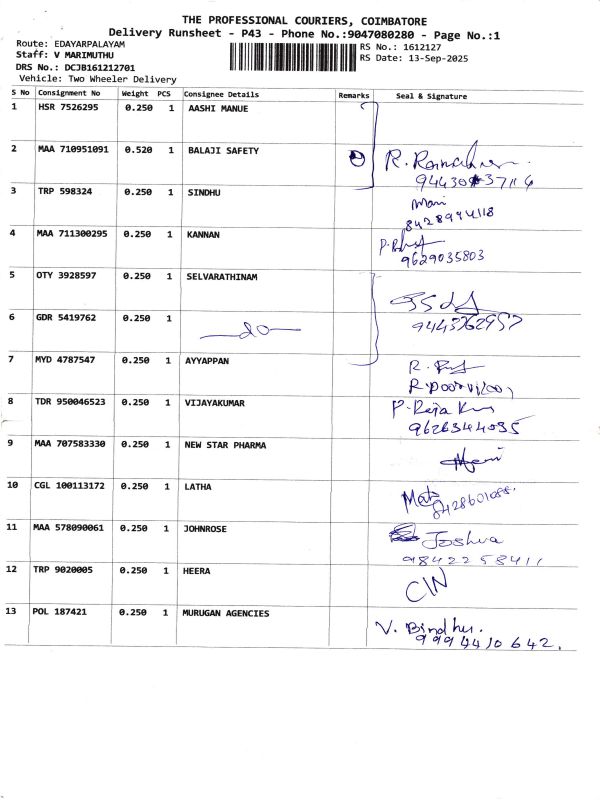 THE PROFESSIONAL COURIERS, COIMBATORE
Delivery Runsheet - P43 - Phone No.:9047080280 - Page No.:1
Route: EDAYARPALAYAM
Staff: V MARIMUTHU
DRS No.: DCJB161212701
Vehicle: Two Wheeler Delivery
RS No.: 1612127
RS Date: 13-Sep-2025
S No Consignment No Weight PCS Consignee Details Remarks Seal & Signature
1 HSR 7526295 0.250 1 AASHI MANUE
2 MAA 710951091 0.520 1 BALAJI SAFETY R.
3 TRP 598324 0.250 1 SINDHU Mani
8428994118
4 MAA 711300295 0.250 1 KANNAN
9629035803
5 OTY 3928597 0.250 1 SELVARATHINAM
6 GDR 5419762 0.250 1 do
9443762957
7 MYD 4787547 0.250 1 AYYAPPAN R.
8 TDR 950046523 0.250 1 VIJAYAKUMAR P. Raja
9626344035
9 MAA 707583330 0.250 1 NEW STAR PHARMA
10 CGL 100113172 0.250 1 LATHA
11 MAA 578090061 0.250 1 JOHNROSE Joshua
9842258411
12 TRP 9020005 0.250 1 HEERA
13 POL 187421 0.250 1 MURUGAN AGENCIES V. Bindhu.
9994410642.